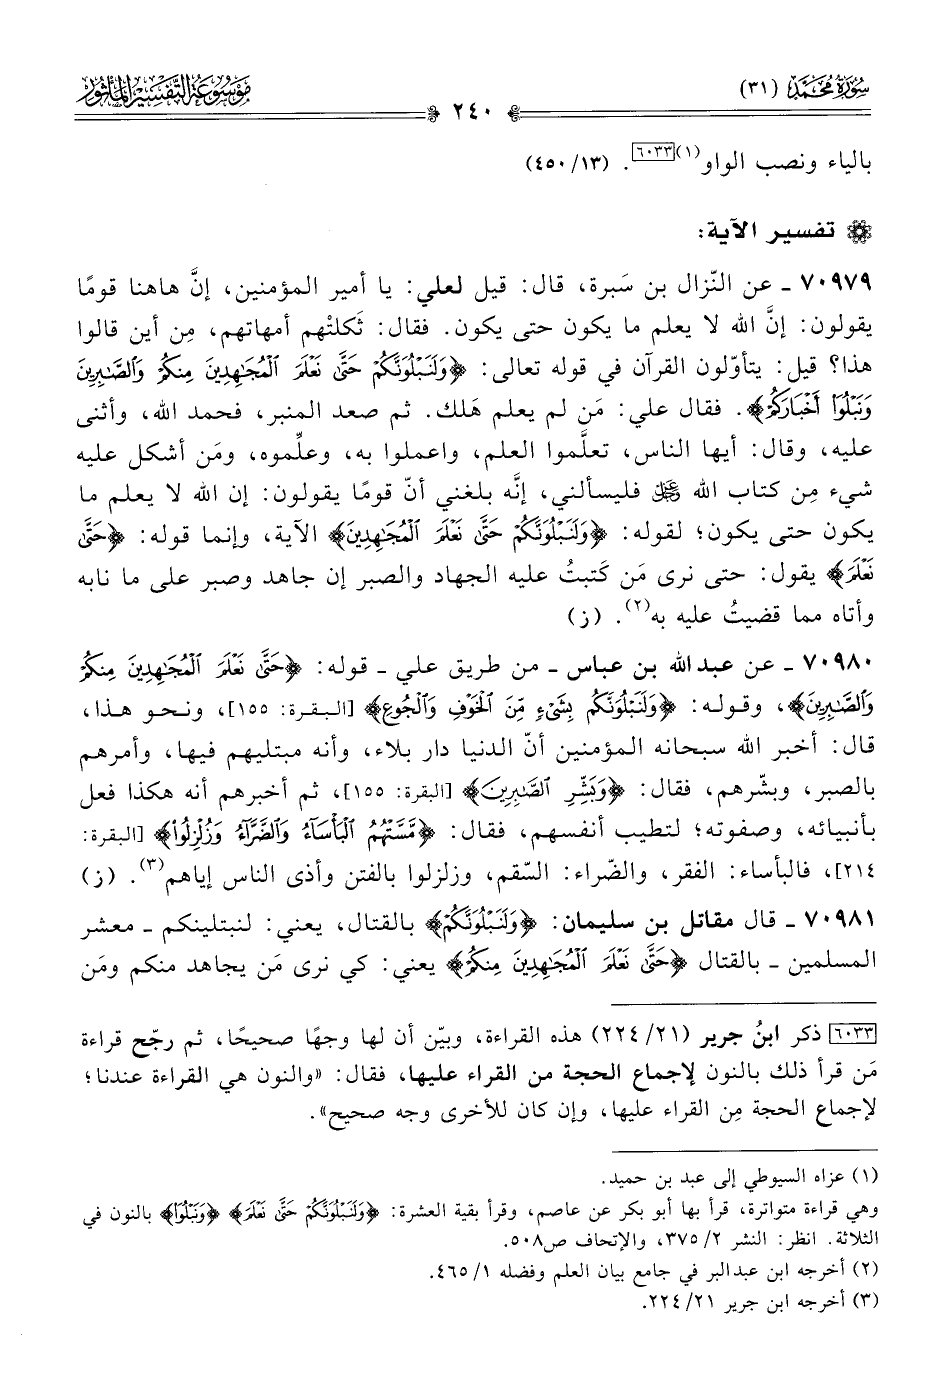 سورة محمد (٣١)
موسوعة التفسير المأثور
٢٤٠
بالياء ونصب الواو(١)[٦٠٣٣]. (٤٥٠/١٣)
تفسير الآية:
٧٠٩٧٩ ـ عن النّزال بن سَبرة، قال: قيل لعلي: يا أمير المؤمنين، إنَّ هاهنا قومًا
يقولون: إنَّ الله لا يعلم ما يكون حتى يكون. فقال: ثَكلتْهم أمهاتهم، مِن أين قالوا
هذا؟ قيل: يتأوّلون القرآن في قوله تعالى: ﴿وَلَنَبْلُوَنَّكُمْ حَتَّى نَعْلَمَ الْمُجَاهِدِينَ مِنكُمْ وَالصَّابِرِينَ
وَنَبْلُوَا أَخْبَارَكُمْ﴾. فقال علي: مَن لم يعلم هَلك. ثم صعد المنبر، فحمد الله، وأثنى
عليه، وقال: أيها الناس، تعلَّموا العلم، واعملوا به، وعلِّموه، ومَن أشكل عليه
شيء مِن كتاب الله ﷻ فليسألني، إنَّه بلغني أنّ قومًا يقولون: إن الله لا يعلم ما
يكون حتى يكون؛ لقوله: ﴿وَلَنَبْلُوَنَّكُمْ حَتَّى نَعْلَمَ الْمُجَاهِدِينَ﴾ الآية، وإنما قوله: ﴿حَتَّى
نَعْلَمَ﴾ يقول: حتى نرى مَن كَتبتُ عليه الجهاد والصبر إن جاهد وصبر على ما نابه
وأتاه مما قضيتُ عليه به(٢). (ز)
٧٠٩٨٠ ـ عن عبد الله بن عباس ـ من طريق علي ـ قوله: ﴿حَتَّى نَعْلَمَ الْمُجَاهِدِينَ مِنكُمْ
وَالصَّابِرِينَ﴾، وقوله: ﴿وَلَنَبْلُوَنَّكُم بِشَيْءٍ مِّنَ الْخَوْفِ وَالْجُوعِ﴾ [البقرة: ١٥٥]، ونحو هذا،
قال: أخبر الله سبحانه المؤمنين أنّ الدنيا دار بلاء، وأنه مبتليهم فيها، وأمرهم
بالصبر، وبشّرهم، فقال: ﴿وَبَشِّرِ الصَّابِرِينَ﴾ [البقرة: ١٥٥]، ثم أخبرهم أنه هكذا فعل
بأنبيائه، وصفوته؛ لتطيب أنفسهم، فقال: ﴿مَّسَّتْهُمُ الْبَأْسَاءُ وَالضَّرَّاءُ وَزُلْزِلُوا﴾ [البقرة:
٢١٤]، فالبأساء: الفقر، والضّراء: السّقم، وزلزلوا بالفتن وأذى الناس إياهم(٣). (ز)
٧٠٩٨١ ـ قال مقاتل بن سليمان: ﴿وَلَنَبْلُوَنَّكُمْ﴾ بالقتال، يعني: لنبتلينكم ـ معشر
المسلمين ـ بالقتال ﴿حَتَّى نَعْلَمَ الْمُجَاهِدِينَ مِنكُمْ﴾ يعني: كي نرى مَن يجاهد منكم ومَن
[٦٠٣٣] ذكر ابنُ جرير (٢٢٤/٢١) هذه القراءة، وبيّن أن لها وجهًا صحيحًا، ثم رجّح قراءة
مَن قرأ ذلك بالنون لإجماع الحجة من القراء عليها، فقال: «والنون هي القراءة عندنا؛
لإجماع الحجة مِن القراء عليها، وإن كان للأخرى وجه صحيح».
(١) عزاه السيوطي إلى عبد بن حميد.
وهي قراءة متواترة، قرأ بها أبو بكر عن عاصم، وقرأ بقية العشرة: ﴿وَلَنَبْلُوَنَّكُمْ حَتَّى نَعْلَمَ﴾ ﴿وَنَبْلُوَا﴾ بالنون في
الثلاثة. انظر: النشر ٣٧٥/٢، والإتحاف ص٥٠٨.
(٢) أخرجه ابن عبد البر في جامع بيان العلم وفضله ٤٦٥/١.
(٣) أخرجه ابن جرير ٢٢٤/٢١.